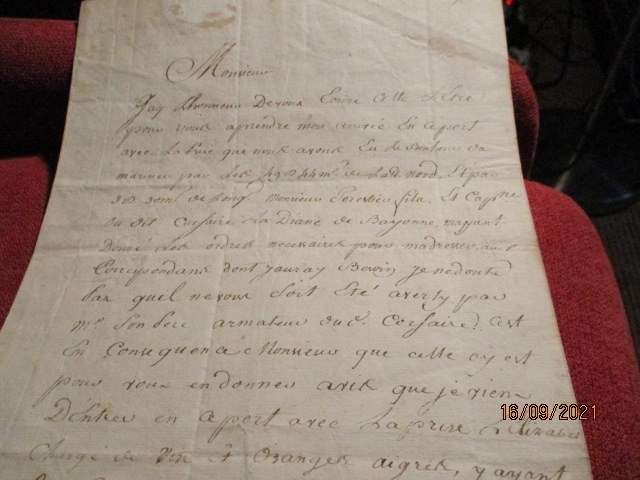 Monsieur
Jay Lhonneur De vous Ecrire Cette Lettre
pour vous aprendre mon arrivé En ceport
avec La prise que nous avons
par Les 49 D 44 m. de Lad. nord. Et par
de Long. monsieur fils, Et Capne
du dit Corsaire La Diane de Bayonne, mayant
donné Les ordres necessaires pour madresser aux
Corespondans dont Jauray Besoin, Je ne doute
pas quil ne vous soit Eté averty par
mr. son pere armateur du d. Corsaire, C'est
En Consequence Monsieur que celle cy est
pour vous en donner avis que je viens
D'entrer en ceport avec La prise L'Elizabet
Chargé de vin Et Oranges aigres, y ayant
16/09/2021